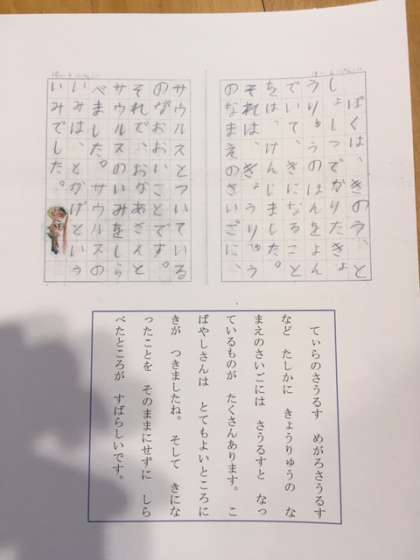 ぼくは、きのう、と
しょしつでかりたきょ
うりゅうのほんをよん
でいて、きになること
をはっけんしました。
それは、きょうりゅう
のなまえのさいごに、
サウルスとついている
のがおおいことです。
それで、おかあさんと
サウルスのいみをしら
べました。サウルスの
いみは、とかげという
いみでした。
てぃらのさうるす めがろさうるす
など たしかに きょうりゅうの な
まえのさいごには さうるすと なっ
ているものが たくさんあります。 こ
ばやしさんは とてもよいところに
きが つきましたね。 そして きにな
ったことを そのままにせずに しら
べたところが すばらしいです。